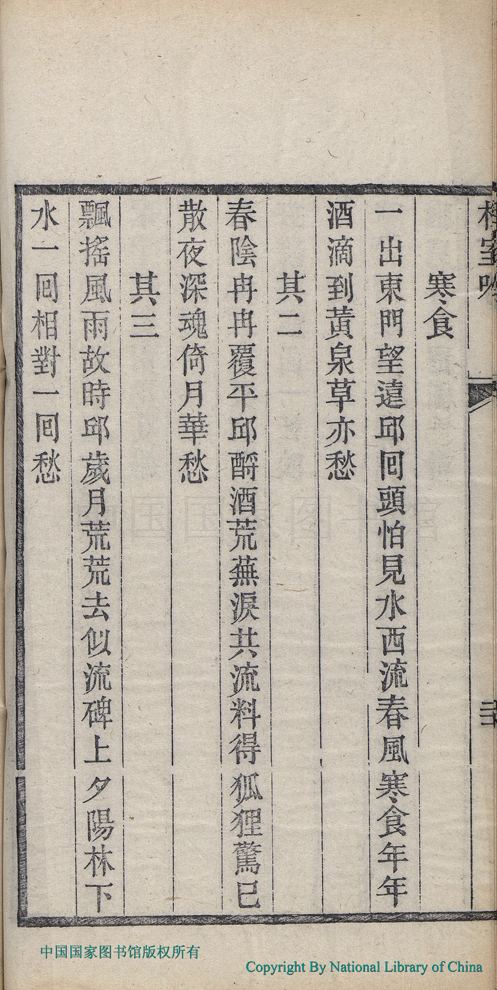 寒食
一出東門望遠邱囘頭怕見水西流春風寒食年年
酒滴到黃泉草亦愁
其二
春陰冉冉覆平邱酹酒荒蕪淚共流料得狐狸驚已
散夜深魂倚月華愁
其三
飄搖風雨故時邱歲月荒荒去似流碑上夕陽林下
水一囘相對一囘愁
中国国家图书馆版权所有
Copyright By National Library of China